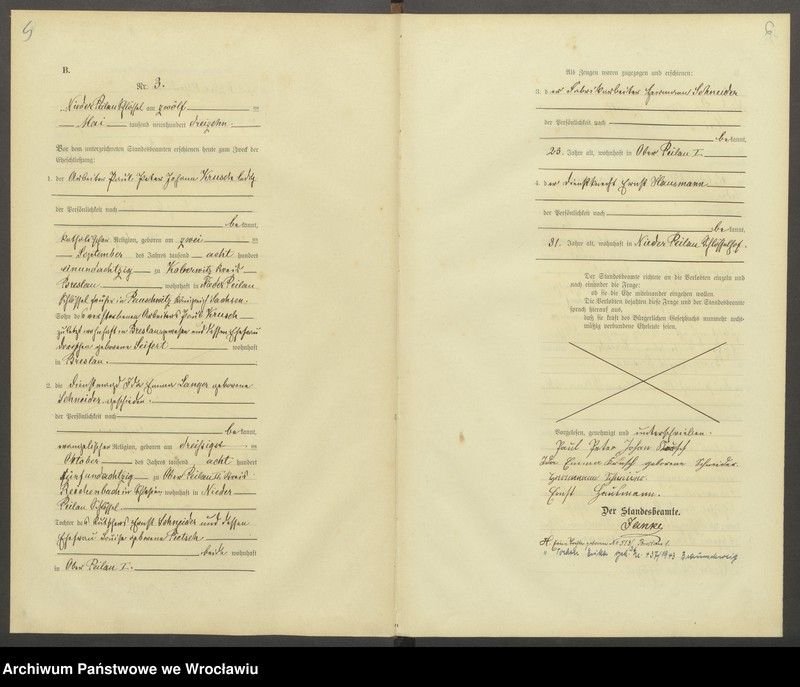 B.
Nr. 3.
Nieder Peilau Schlössel am zwölf ten
Mai tausend neunhundert dreizehn.
Vor dem unterzeichneten Standesbeamten erschienen heute zum Zweck der
Eheschließung:
1. der Arbeiter Paul Peter Johann Krusch ledig
der Persönlichkeit nach
be kannt,
katholischer Religion, geboren am zwei ten
September des Jahres tausend acht hundert
einundachtzig zu Koberwitz Kreis
Breslau wohnhaft in Nieder Peilau
Schlössel früher in Königreich Sachsen.
Sohn des verstorbenen Arbeiters Paul Krusch
zuletzt wohnhaft in Breslau gewesen und dessen Ehefrau
geborene Seifert wohnhaft
in Breslau.
2. die Dienstmagd Ida Emma Langer geborene
Schneider geschieden.
der Persönlichkeit nach
be kannt,
evangelischer Religion, geboren am dreißigst en
Oktober des Jahres tausend acht hundert
fünfundachtzig zu Ober Peilau II Kreis
Reichenbach in Schlesien wohnhaft in Nieder
Peilau Schlössel
Tochter des Kutschers Ernst Schneider und dessen
Ehefrau Louise geborene Pietsch
beide wohnhaft
in Ober Peilau I.
6
Als Zeugen waren zugezogen und erschienen:
3. der Fabrikarbeiter Hermann Schneider
der Persönlichkeit nach
be kannt,
23 Jahre alt, wohnhaft in Ober Peilau I.
4. der Dienstknecht Ernst Hausmann
der Persönlichkeit nach
be kannt,
31 Jahre alt, wohnhaft in Nieder Peilau Schlösselhof.
Der Standesbeamte richtete an die Verlobten einzeln und
nach einander die Frage:
ob sie die Ehe miteinander eingehen wollen.
Die Verlobten bejahten diese Frage und der Standesbeamte
sprach hierauf aus,
daß sie kraft des Bürgerlichen Gesetzbuchs nunmehr recht-
mäßig verbundene Eheleute seien.
Vorgelesen, genehmigt und unterschrieben.
Paul Peter Johan Krusch
Ida Emma Krusch geborene Schneider
Hermann Schneider
Ernst Hausmann.
Der Standesbeamte.
Janke
Archiwum Państwowe we Wrocławiu